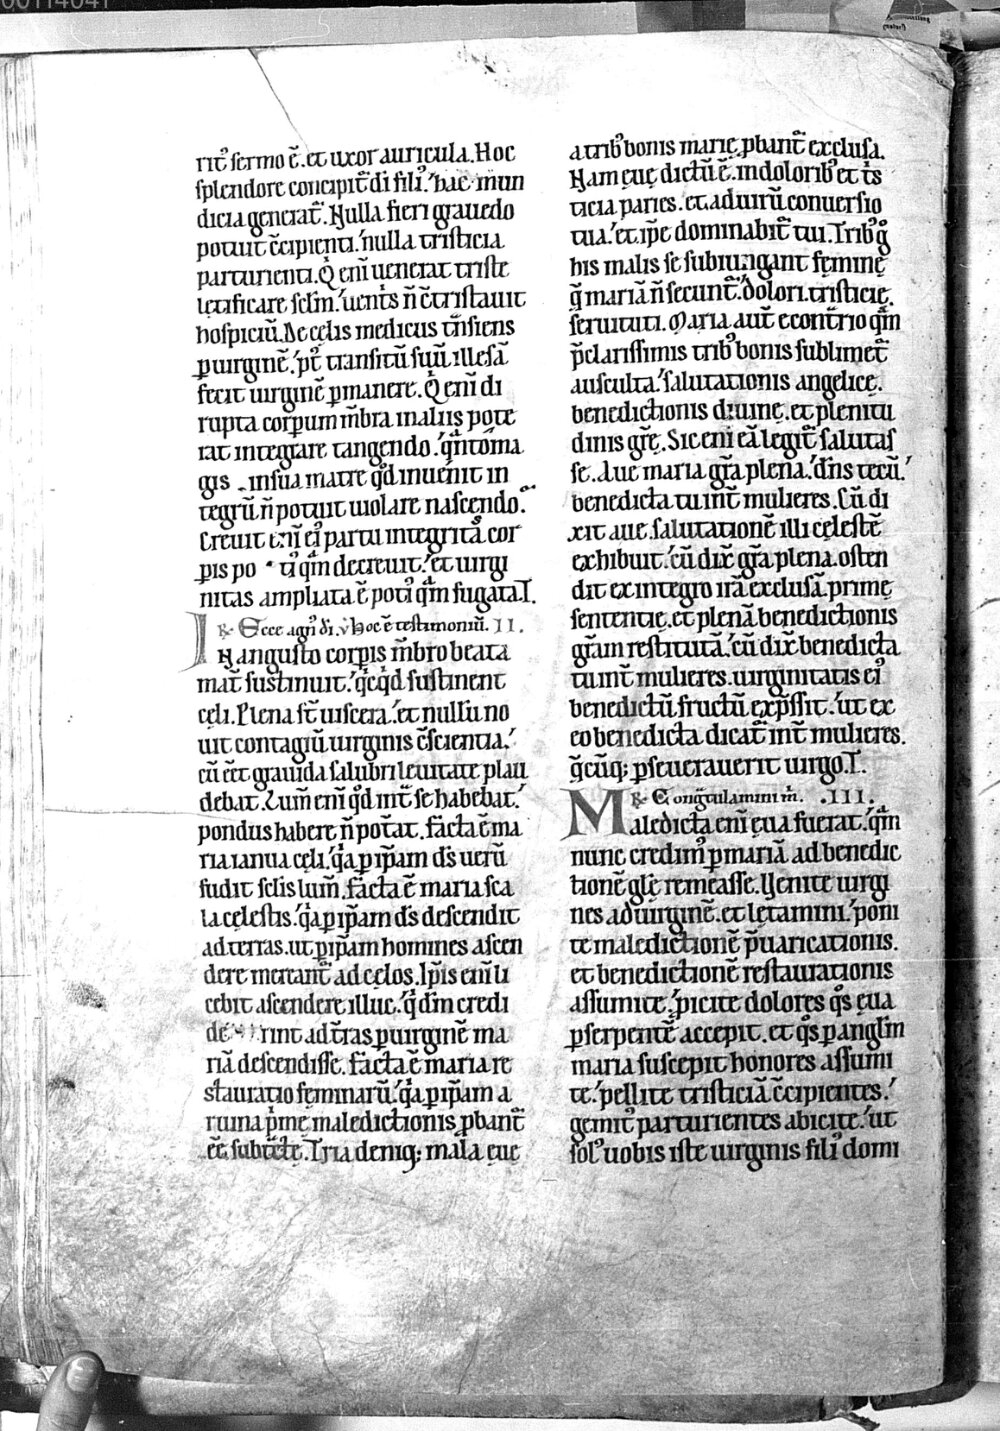 00114041
rit᷒ sermo ē. et uxor auricula. Hoc
splendore concipit᷒ di fili᷒. hac mun
dicia generat᷒. Nulla fieri grauedo
potuit c̄cipienti. nulla tristicia
parturienti. Q̇ eni uenerat triste
lętificare sclm. uenīs n̄ c̄tristauit
hospiciū. De cęlis medicus trnsiens
ꝑ uirginē. p᷒ transitū suū illesā
fecit uirginē ꝑmanere. Q̇ enī di
rupta corporum mb̄ra in aliis pote
rat integrare tangendo. qn̄to ma
gis in sua matre qd̄ inuenit in
tegrū n̄ potuit uiolare nascendo.
Creuit enī ei᷒ partu integritā cor
ꝑis po ti᷒ qm̄ decreuit. et uirgi
nitas ampliata ē poti᷒ qm̄ fugata. T.
R̷ Ecce agn᷒ di. v̓ Hoc ē testimoniū. II.
IN angusto corꝑis mb̄ro beata
mat̄ sustinuit. qc̓qd̓ sustinent
cęli. Plena st̄ uiscera. et nullū no
uit contagiū uirginis c̄scientia.
cū eēt grauida salubri leuitate plau
debat. Lum̄ enī qd̓ int̄ se habebat.
pondus habere n̄ pot̄at. facta ē ma
ria ianua cęli. qa ꝑ ip̄am ds̄ uerū
fudit sclis lum̄. facta ē maria sca
la cęlestis. qa ꝑ ip̄am ds̄ descendit
ad terras. ut ꝑ ip̄am homines ascen
dere mereant᷒ ad cęlos. Ip̄is enī li
cebit ascendere illuc. qd̓ dm̄ credi
de rint ad t̄ras ꝑ uirginē ma
riā descendisse. facta ē maria re
stauratio feminarū. qa ꝑ ip̄am a
ruina p̓mę maledictionis ꝓbant᷒
eē subt̓cte. Tria deniq; mala ęue
a trib᷒ bonis marię ꝓbant᷒ exclusa.
Nam ęuę dictū ē. in dolorib᷒ et t̓s
ticia paries. et ad uirū conuersio
tua. et ip̄e dominabit᷒ tui. Trib᷒ g̊
his malis se subiungant feminę
q̄ mariā n̄ secunt᷒. dolori. tristicię.
seruituti. Maria aut̄ econtrio qm̄
p̄clarissimis trib᷒ bonis sublimet᷒
ausculta. salutationis angelicę.
benedictionis diuinę. et plenitu
dinis gr̄ę. Sic eni eā legit᷒ salutas
se. Aue maria gr̄a plena. dn̄s tecū.
benedicta tu int̄ mulieres. Cū di
xit aue. salutationē illi cęlestē
exhibuit. cū dix̄ gr̄a plena. osten
dit ex integro irā exclusā primę
sententię. et plenā benedictionis
gr̄am restitutā. cū dix̄ benedicta
tu int̄ mulieres. uirginitatis ei᷒
benedictū fructū exp̄ssit. ut ex
eo benedicta dicat᷒ int̄ mulieres.
q̄cūq; ꝑseuerauerit uirgo. T.
R̷ Congr̄tulamini m̄. .III.
Maledicta enī eua fuerat. qm̄
nunc credim᷒ ꝑ mariā ad benedic
tionē glę̄ remeasse. Venite uirgi
nes ad uirginē. et lętamini. poni
te maledictionē p̄uaricationis.
et benedictionē restaurationis
assumite. ꝓicite dolores qs̊ eua
ꝑ serpentē accepit. et qs̊ ꝑ anglm̄
maria suscepit honores assumi
te. pellite tristiciā c̄cipientes.
gemit᷒ parturientes abicite. ut
sol᷒ uobis iste uirginis fili᷒ domi